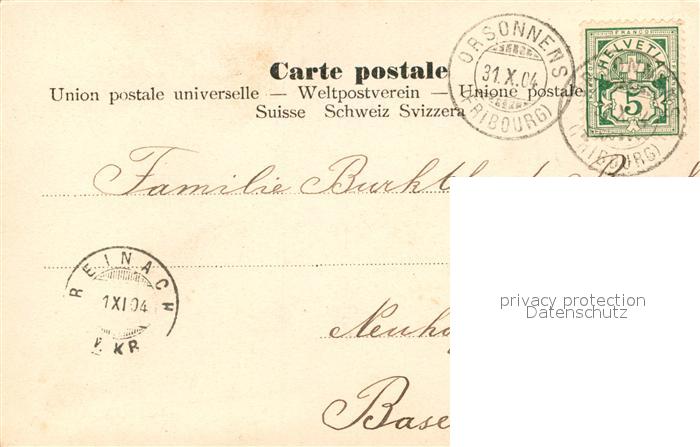 Carte postale
Union postale universelle — Weltpostverein — Unione postale
Suisse Schweiz Svizzera
ORSONNENS
31.X.04
(FRIBOURG)
FRANCO
HELVETIA
5
(FRIBOURG)
Familie
REINACH
1 XI 04
privacy protection
Datenschutz